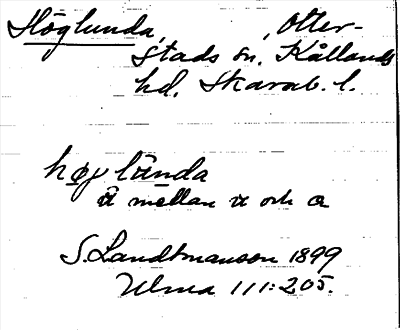 Höglunda, Otter-
stads sn. Kållands
hd. Skarab. l.
høg lŭnda
mellan och a
S. Landtmanson 1899
Ulma 111:205.